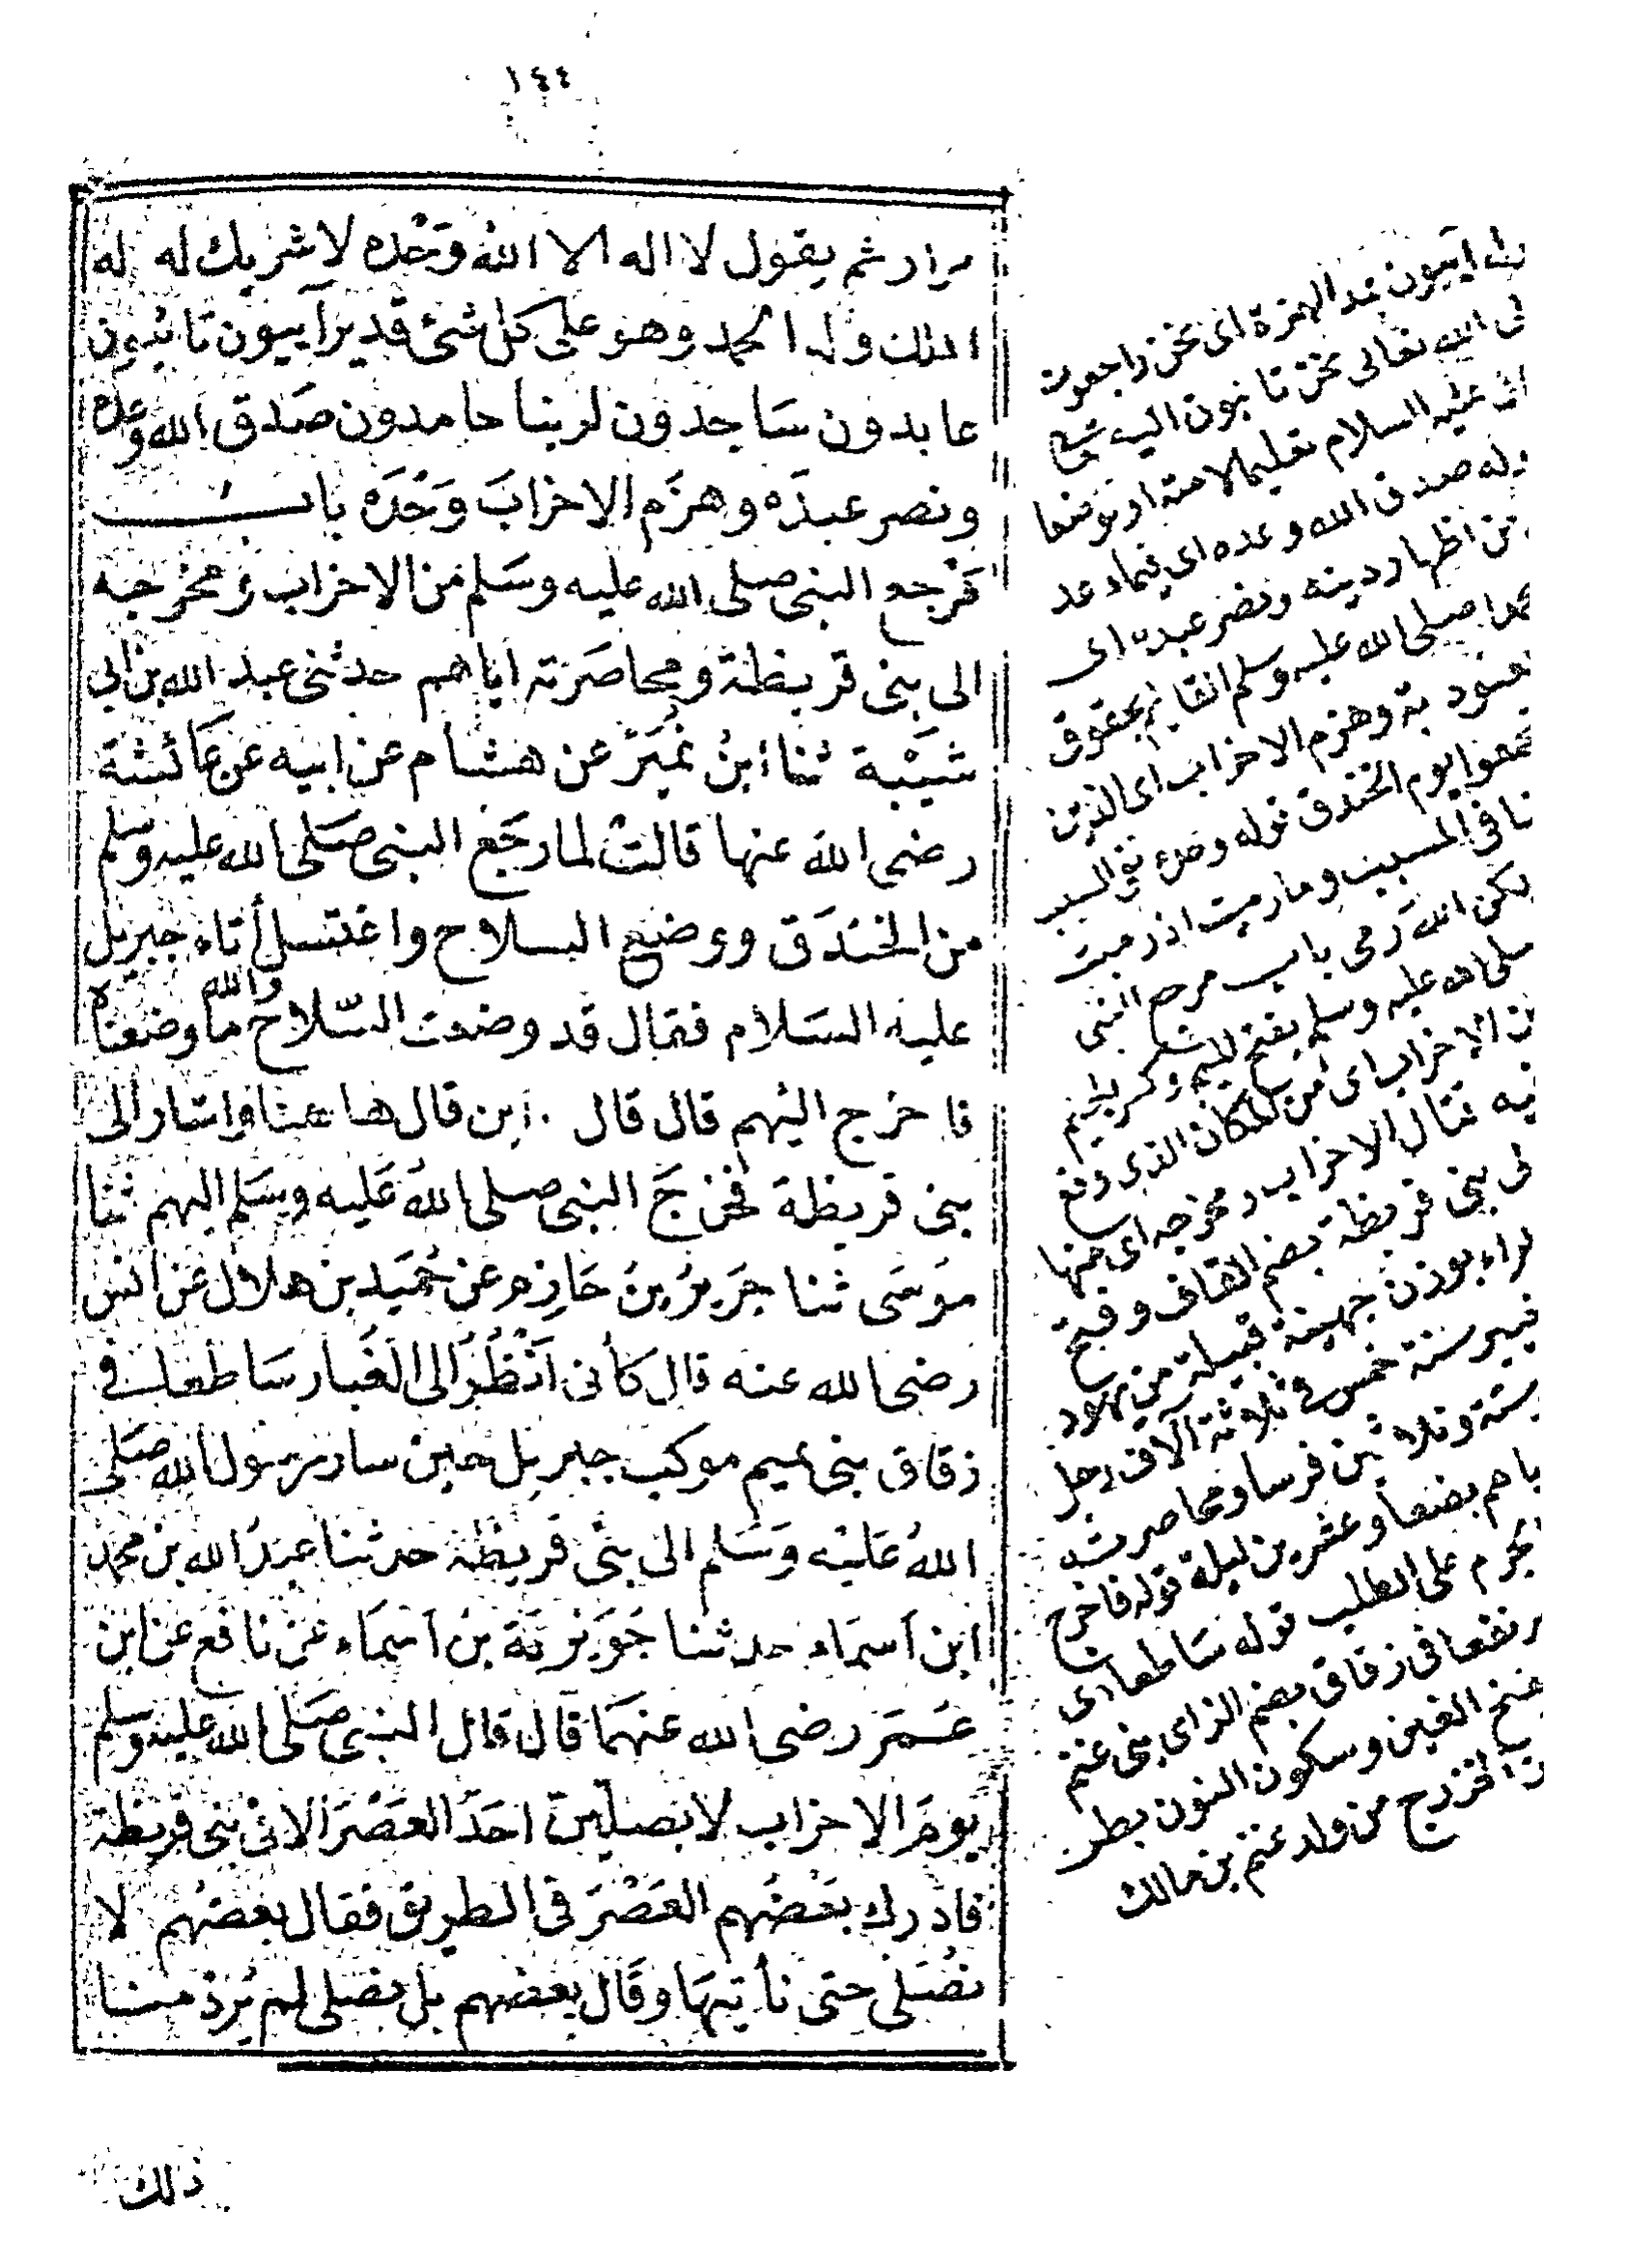 ١٤٤
مرار ثم يقول لا اله الا الله وَحْدَه لا شريك له له
الملك وله الحمد وهو على كل شئ قدير آيبون تائبون
عابدون سَاجدون لربنا حامدون صَدق الله وَعده
ونصر عبدَه وهزَم الاحزابَ وَحْدَه بابُ
مَرْجع النبى صلى الله عليه وسَلم من الاحزاب وَمخرجه
الى بنى قريظة ومحاصَرته اياهم حدثنى عبد الله بن ابى
شَيْبة ثنا ابنُ نُمَيَرْ عن هشام عن ابيه عن عَائشة
رضى الله عنها قالتْ لما رَجَع النبى صَلى الله عليه وسلم
من الخندَق ووضع السلاح واغتسل أتاه جبريل
عليه السَلام فقال قد وضعت السّلاح والله ما وضعناه
فاخرج اليهم قال قال اين قال هاهنا واشار الى
بنى قريظة فخرَجَ النبى صلى اللهُ عَليه وسَلم اليهم ثنا
موُسَى ثنا جَريرُ بنُ حَازم عن حُمَيد بن هلال عن انس
رضى الله عنه قال كأنى اَنْظُرُ الى الغُبار سَاطعا فى
زقاق بنى غنم موكب جبريل حين سار رَسُول الله صَلى
اللهُ عَليْه وَسَلم الى بنى قريظة حدثنا عبدُ الله بن محمد
ابن اَسمَاء حدثنا جُوَيْرية بن اَسمَاء عن نافع عن ابن
عُمَر رضى الله عنهمَا قال قال النبى صَلى الله عليه وسلم
يومَ الاحزاب لا يصلّينّ احَدٌ العَصْرَ الا فى بنى قريظة
فادرك بَعْضُهم العَصْرَ فى الطريق فقال بعضهُم لا
نصُلى حتى نأتيَهَا وقَال بعضهم بل نصلى لم يُردْ منا
ذلك
آيبون بمد الهمزة اى نحن راجعون
الله تعالى نحن تائبون اليه
عليه السلام تعليما لامته او تواضعا
صدق الله وعده اى فيما وعد
من اظهار دينه ونصر عبده اى
صلى الله عليه وسلم القايم بحقوق
وهزم الاحزاب اى الذين
يوم الخندق قوله وحده
وما رميت اذ رميت
الله رمى باب مرجع النبى
صلى الله عليه وسلم بفتح الميم وكسر الجيم
من الاحزاب اى من المكان الذى وقع
فيه قتال الاحزاب ومخرجه اى منها
الى بنى قريظة بضم القاف وفتح
الراء بوزن جهينة قبيلة من يهود
خيبر سنة خمس فى ثلاثة آلاف رجل
وستة وثلاثين فرسا ومحاصرته
اياهم بضعا وعشرين ليلة قوله فاخرج
على الطلب قوله ساطعا اى
مرتفعا فى زقاق بضم الزاى بنى غنم
بفتح الغين وسكون النون بطن
من الخزرج من ولد غنم بن مالك